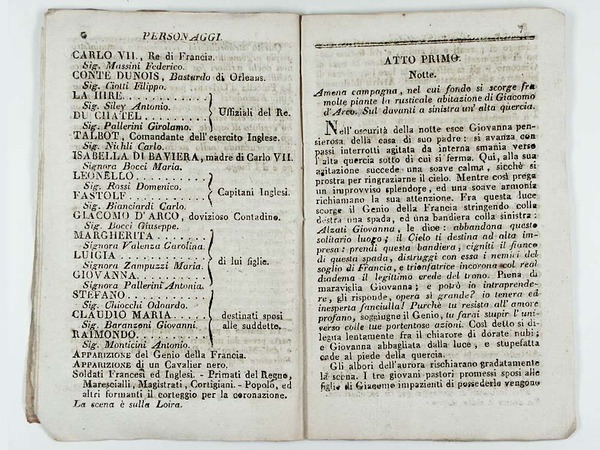 6
PERSONAGGI.
CARLO VII., Re di Francia.
Sig. Massini Federico.
CONTE DUNOIS, Bastardo di Orleans.
Sig. Ciotti Filippo.
LA HIRE. . . . . . . . . .
Sig. Siley Antonio.
DU CHATEL. . . . . . . . .
Uffiziali del Re.
Sig. Pallerini Girolamo.
TALBOT, Comandante dell'esercito Inglese.
Sig. Nichli Carlo.
ISABELLA DI BAVIERA, madre di Carlo VII.
Signora Bocci Maria.
LEONELLO. . . . . . . . .
Sig. Rossi Domenico.
FASTOLF. . . . . . . . . .
Capitani Inglesi.
Sig. Bianciardi Carlo.
GIACOMO D'ARCO, dovizioso Contadino.
Sig. Bocci Giuseppe.
MARGHERITA. . . . . . . .
Signora Valenza Carolina.
LUIGIA . . . . . . . . . .
di lui figlie.
Signora Zampuzzi Maria.
GIOVANNA. . . . . . . . .
Signora Pallerini Antonia.
STEFANO. . . . . . . . . .
Sig. Chiocchi Odoardo.
CLAUDIO MARIA. . . . . .
destinati sposi
Sig. Baranzoni Giovanni.
alle suddette.
RAIMONDO. . . . . . . . .
Sig. Monticini Antonio.
APPARIZIONE del Genio della Francia.
APPARIZIONE di un Cavalier nero.
Soldati Francesi ed Inglesi. - Primati del Regno,
Marescialli, Magistrati, Cortigiani. - Popolo, ed
altri formanti il corteggio per la coronazione.
La scena è sulla Loira.
7
ATTO PRIMO.
Notte.
Amena campagna, nel cui fondo si scorge fra
molte piante la rusticale abitazione di Giacomo
d'Arco. Sul davanti a sinistra un' alta quercia.
Nell'oscurità della notte esce Giovanna pen-
sierosa dalla casa di suo padre: si avanza con
passi interrotti agitata da interna smania verso
l'alta quercia sotto di cui si ferma. Qui, alla sua
agitazione succede una soave calma, sicchè si
prostra per ringraziarne il cielo. Mentre così prega
un improvviso splendore, ed una soave armonia
richiamano la sua attenzione. Fra questa luce
scorge il Genio della Francia stringendo colla
destra una spada, ed una bandiera colla sinistra:
Alzati Giovanna, le dice: abbandona questo
solitario luogo; il Cielo ti destina ad alta im-
presa: prendi questa bandiera, cigniti il fianco
di questa spada, distruggi con essa i nemici del
soglio di Francia, e trionfatrice incorona col real
diadema il legittimo erede del trono. Piena di
maraviglia Giovanna; e potrò io intraprende-
re, gli risponde, opera sì grande? io tenera ed
inesperta fanciulla! Purchè tu resista all' amore
profano, soggiugne il Genio, tu farai stupir l' uni-
verso colle tue portentose azioni. Così detto si di-
legua lentamente fra il chiarore di dorate nubi;
e Giovanna abbagliata dalla luce, e stupefatta
cade al piede della quercia.
Gli albori dell'aurora rischiarano gradatamente
la scena. I tre giovani pastori promessi sposi alle
figlie di Giacomo impazienti di possederle vengono